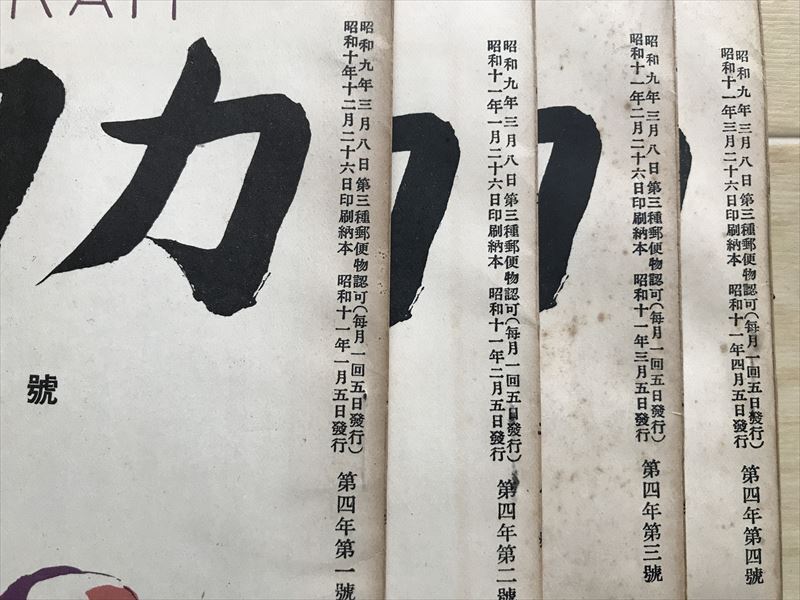 昭和九年三月八日第三種郵便物認可(每月一回五日發行)
昭和十年十二月二十六日印刷納本 昭和十一年一月五日發行
第四年第一號
力
號
昭和九年三月八日第三種郵便物認可(每月一回五日發行)
昭和十一年一月二十六日印刷納本 昭和十一年二月五日發行
第四年第二號
昭和九年三月八日第三種郵便物認可(每月一回五日發行)
昭和十一年二月二十六日印刷納本 昭和十一年三月五日發行
第四年第三號
昭和九年三月八日第三種郵便物認可(每月一回五日發行)
昭和十一年三月二十六日印刷納本 昭和十一年四月五日發行
第四年第四號